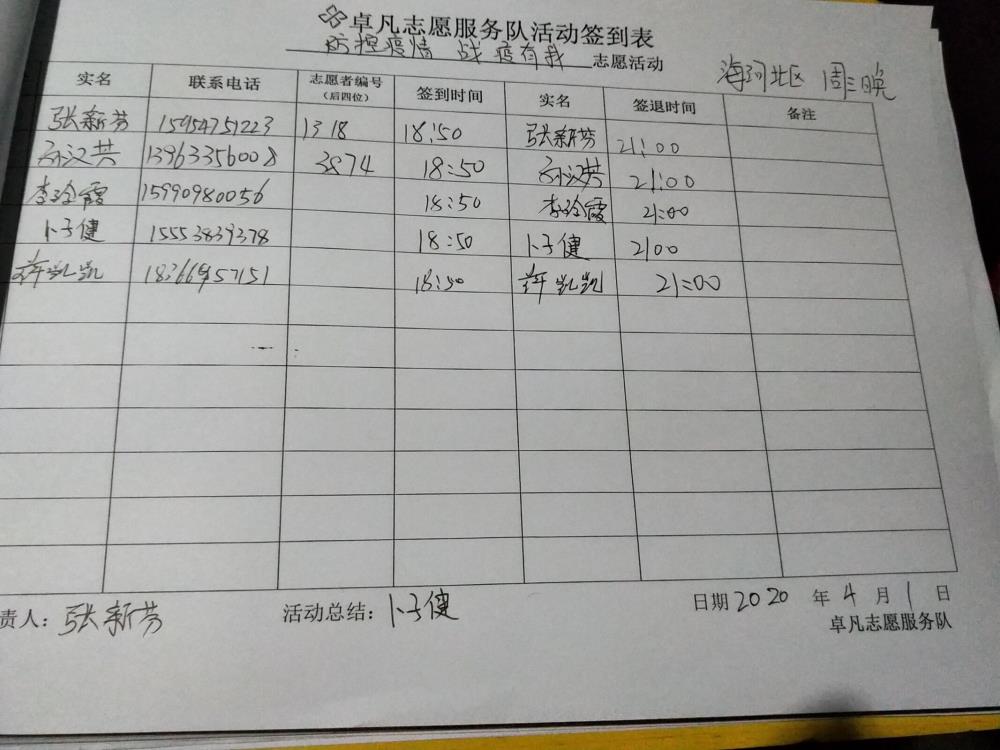 卓凡志愿服务队活动签到表
防控疫情 战疫有我 志愿活动
海河北区 周三晚
实名 联系电话 志愿者编号（后四位） 签到时间 实名 签退时间 备注
张新芳 15954751223 1318 18:50 张新芳 21:00
孙汉共 13963356008 3874 18:50 孙汉共 21:00
李玲霞 15990980056 18:50 李玲霞 21:00
卜子健 15553839378 18:50 卜子健 2100
凯凯 18:50 凯凯 21:00
责人：张新芳 活动总结：卜子健 日期2020年4月1日
卓凡志愿服务队